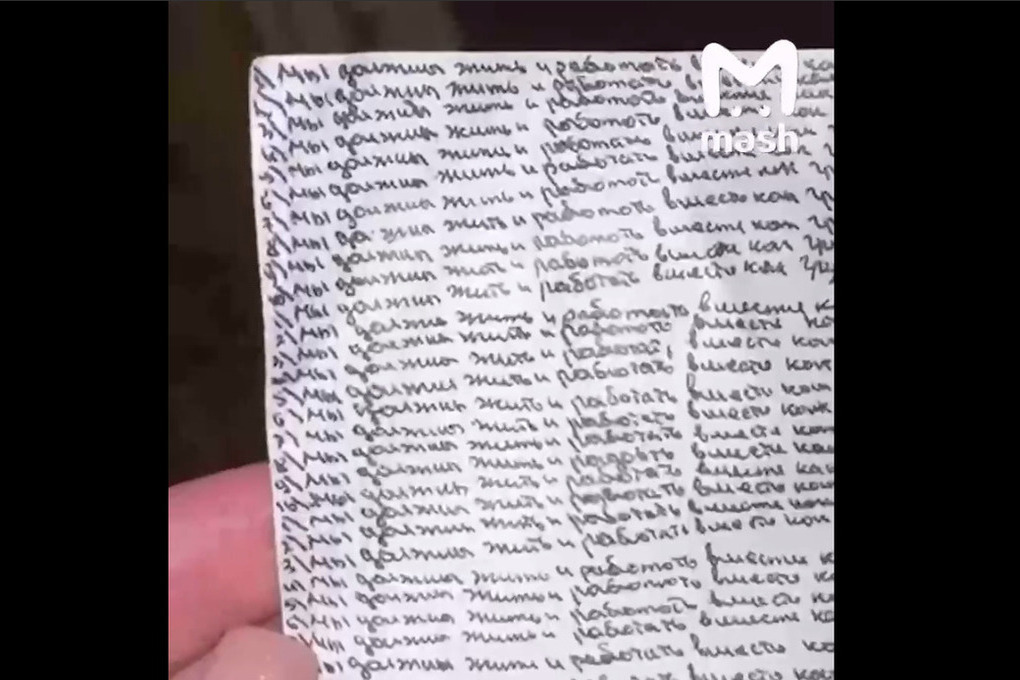 1) Мы должны жить и работать в
mash
2) Мы должны жить и работать
3) Мы должны жить и работать вместе как
4) Мы должны жить и работать вместе
5) Мы должны жить и работать вместе как
6) Мы должны жить и работать вместе как гр
7) Мы должны жить и работать вместе как гр
8) Мы должны жить и работать вместе как гр
9) Мы должны жить и работать вместе как гр
10) Мы должны жить и работать вместе как гру
1) Мы должны жить и работать вместе к
2) Мы должны жить и работать вместе ка
3) Мы должны жить и работать вместе как
4) Мы должны жить и работать вместе как
5) Мы должны жить и работать вместе как
6) Мы должны жить и работать вместе как
7) Мы должны жить и работать вместе как
8) Мы должны жить и работать вместе как
9) Мы должны жить и работать вместе как
10) Мы должны жить и работать вместе как
1) Мы должны жить и работать вместе как
2) Мы должны жить и работать вместе как
3) Мы должны жить и работать вместе к
4) Мы должны жить и работать вместе ка
5) Мы должны жить и работать вместе ка
6) Мы должны жить и работать вместе
Мы должны жить и работать вместе ка